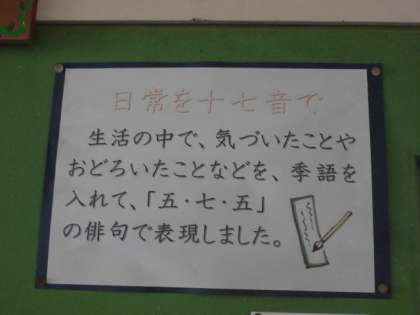 日常を十七音で
生活の中で、気づいたことや
おどろいたことなどを、季語を
入れて、「五・七・五」
の俳句で表現しました。